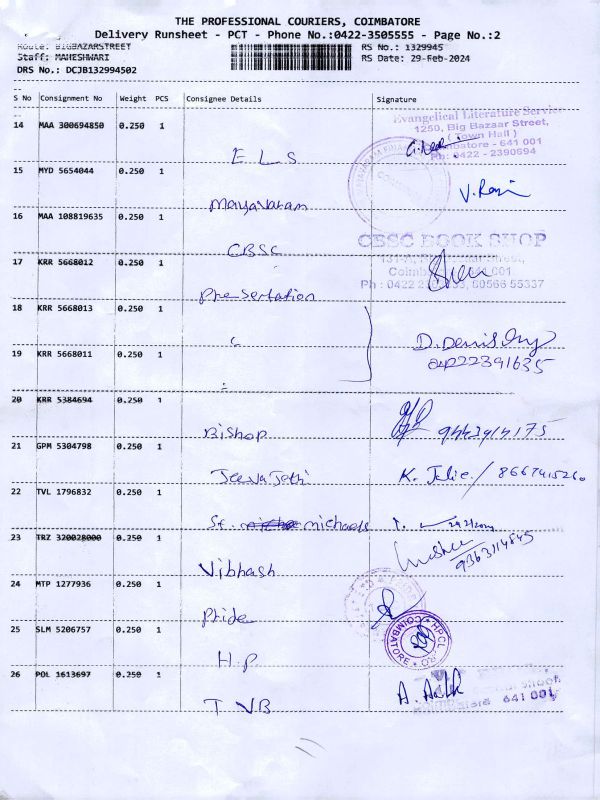 THE PROFESSIONAL COURIERS, COIMBATORE
Delivery Runsheet - PCT - Phone No.:0422-3505555 - Page No.:2
Route: BIGBAZARSTREET
RS No.: 1329945
Staff: MAHESHWARI
RS Date: 29-Feb-2024
DRS No.: DCJB132994502
S No Consignment No Weight PCS Consignee Details Signature
14 MAA 300694850 0.250 1
Evangelical Literature Service
1250, Big Bazaar Street,
( Town Hall )
Coimbatore - 641 001
Ph: 0422 - 2390594
E L S
15 MYD 5654044 0.250 1
Mayavaram
V. Ravi
16 MAA 108819635 0.250 1
CBSC
CBSC BOOK SHOP
17 KRR 5668012 0.250 1
Presertation
18 KRR 5668013 0.250 1
19 KRR 5668011 0.250 1
20 KRR 5384694 0.250 1
Bishop
21 GPM 5304798 0.250 1
JeevaJothi
K. Julie / 8667415260
22 TVL 1796832 0.250 1
St. michaels
23 TRZ 320028000 0.250 1
Vibhash
9363114845
24 MTP 1277936 0.250 1
Pride
25 SLM 5206757 0.250 1
H.P
HPCL
COIMBATORE
26 POL 1613697 0.250 1
T VB
641 001